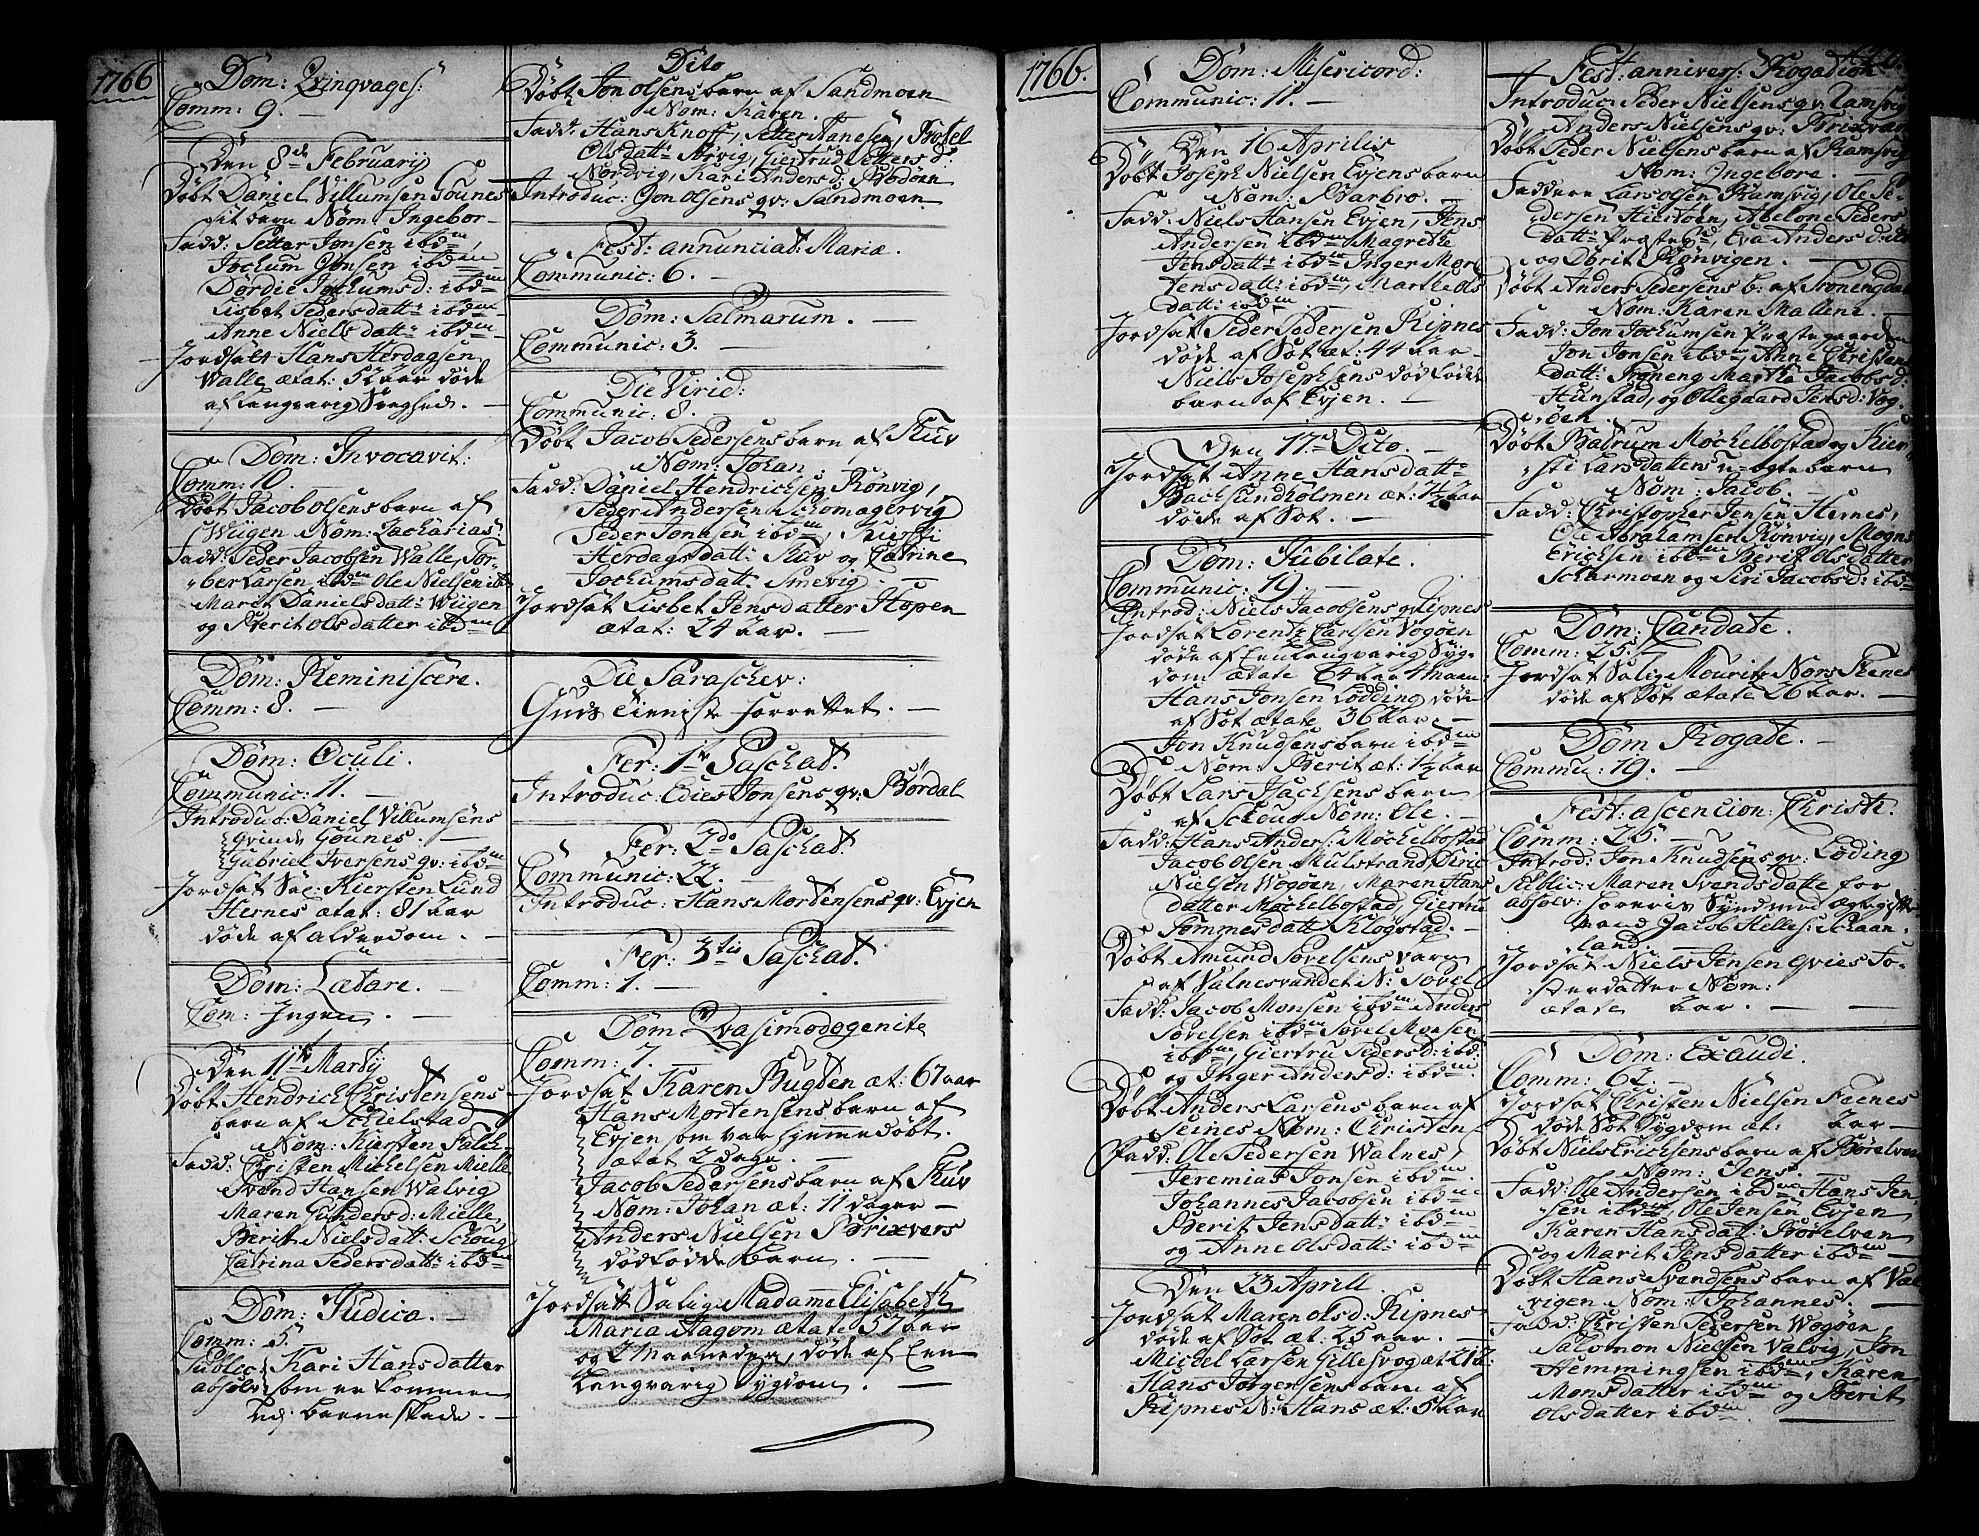 1766
Dom: Qvinqvages:
Comm: 9. —
Den 8de February
Døbt Daniel Villumsen Gounes
dit barn Nom: Ingebor
Fadd: Petter Jonsen ibdm,
Jochum Jonsen ibdm
Dordie Jochumsd: ibdm
Lisbet Pedersdatt: ibdm
Anne Nielsdatt: ibdm
Jordsatt Hans Herdagsen
Walle, ætat: 52 aar døde
af langvarig Svaghed. —
Dom: Invocavit:
Comm: 10. —
Døbt Jacob Olsens barn af
Wiigen Nom: Zacharias
Fadd: Peder Jacobsen Walle, Tor-
ber Larsen ibdm Ole Nielsen ibd
Marit Danielsdatt: Wiigen
og Berit Olsdatter ibdm
Dom: Reminiscere.
Comm: 8. —
Dom: Oculi.
Communic: 11. —
Introduc: Daniel Villumsens
qvinde Gounes. —
Gabriel Iversens qv: ibdm
Jordsat Sal: Kiersten Lund
Hernes ætat: 81 aar
døde af alderdom. —
Dom: Lætare. —
Com: Ingen. —
Den 11te Martij
Døbt Hendrich Christensens
barn af Schielstad
Nom: Kiersten Falch
Fadd: Christen Michelsen Mielle
Svend Hansen Walvig
Maren Gundersd: Mielle,
Berit Nielsdatt: Schoug
Catrina Pedersdatt: ibdm
Dom: Judica. —
Comm: 5.
Public: Kari Hansdatter
absolv: som er kommen
udj barneskade. —
Dito
Døbt Jon Olsens barn af Sandmoen
Nom: Karen.
Fadd: Hans Knoff, Petter Hanesen,
Olsdatt: Nørvig, Giertrud Pettersd:
Nordvig, Kari Andersd: Bodøen
Introduc: Jon Olsens qv: Sandmoen
Fest: annunciat: Mariæ.
Communic: 6. —
Dom: Palmarum. —
Communic: 3. —
Die Virid:
Communic: 8. —
Døbt Jacob Pedersens barn af Skuv
Nom: Johan
Fadd: Daniel Hendrichsen Rønvig,
Peder Andersen Schomagervig
Peder Jonasen ibdm,
Herdagsdatt: Skuv og Catrine
Jochumsdatt: Smevig. —
Jordsat Lisbet Jensdatter Hopen
ætat: 24 aar. —
Die Paraschev:
Guds tieniste forrettet. —
Fer: 1te Paschat.
Introduc: Edies Jonsens qv: Børdal
Fer: 2do Paschat.
Communic: 22. —
Introduc: Hans Mortensens qv: Evjen
Fer: 3tia Paschat.
Comm: 1. —
Dom: Qvasimodogenite
Comm: 7. —
Jordsat Karen Bugden æt: 67 aar
Hans Mortensens barn af
Evjen som var hjemmedøbt.
ætat 2 dage. —
Jacob Pedersens barn af Skuv
Nom: Johan æt: 11 dager —
Anders Nielsen Brixvers
dødfødde barn. —
Jordsatt Salig Madame Elisabeth
Maria Hagom ætate 57 aar
og 2 Maaneder, døde af een
langvarig Sygdom. —
1766.
Dom: Misericord:
Communic: 11. —
Den 16 Aprilis
Døbt Joseph Nielsen Evjens barn
Nom: Barbro. —
Fadd: Niels Hansen Evjen, Jens
Andersen ibdm Magrethe
Jensdatt: ibdm Inger Mor-
tensdatt: ibdm, Marthe Ols
datt: ibdm. —
Jordsat Peder Pedersen Ripnes
døde af Sot æt: 44 aar —
Niels Josephsens dødfødde
barn af Evjen. —
Den 17de Dito. —
Jordsat Anne Hansdatt:
Bachsundholmen æt: 1½ aar
døde af Sot. —
Dom: Jubilate.
Communic: 19. —
Introd: Niels Jacobsens qv: Ripnes
Jordsat Lorentz Carlsen Vogøen
døde af Een langvarig Syg-
dom ætate 64 aar 4 Maan:
Hans Jonsen Lødding døde
af Sot ætate 36 aar. —
Jon Knudsens barn ibdm
Nom: Berit æt: 1½ aar
Døbt Lars Isachsens barn
af Schoug Nom: Ole. —
Fadd: Hans Anders: Møchelbostad
Jacob Olsen Mulstrand, Siric
Nielsen Vogøen, Maren Hans
datter Møchelbostad, Giertru
Tommesdatt: Klogstad. —
Døbt Amund Povelsens barn
af Valnesvandet N: Povel
Fadd: Jacob Monsen ibdm Anders
Povelsen ibdm Povel Monsen
ibdm, Giertru Pedersd: ibd:
og Inger Andersd: ibdm.
Døbt Anders Larsens barn af
Seines Nom: Christen
Fadd: Ole Pedersen Walnes,
Jeremias Jonsen ibdm
Johannes Jacobsen ibdm
Berit Jensdatt: ibdm
og Anne Olsdatt: ibdm
Den 23 Aprill.
Jordsat Maren Olsd: Ripnes
døde af Sot æt: 25 aar. —
Michel Larsen Gillesvog æt
Hans Jørgensens barn af
Ripnes N: Hans æt: 5 aar
Fest: annivers: Rogadion
Introduc: Peder Nielsens qv: Ramsvig
Anders Nielsens qv: Brixvær
Døbt Peder Nielsens barn af Ramsvig
Nom: Ingebore. —
Faddere Lars Olsen Ramsvig, Ole Pe-
dersen Hiertøen, Abelone Peders
datt: Præsteg:, Eva Andersd: dito
og Dorit Rønvigen. —
Døbt Anders Pedersens b: af Troneng
Nom: Karen Mallene. —
Fadd: Jon Jochumsen Præstegaarden
Jon Jonsen ibdm Anne Christens
datt: Troneng Martha Jacobsd:
Hunstad, og Ollegaard Jensd: Vog-
øen
Døbt Batrum Møchelbostad og Kier-
sti Larsdatters u-ægte barn
Nom: Jacob. —
Fadd: Christopher Jensen Hernes,
Ole Abrahamsen Rønvig, Mogns
Erichsen ibdm Berit Olsdatter
Schiarmoen og Siri Jacobsd: ibdm
Dom: Candate.
Comm: 25. —
Jordsat Salig Mouritz Nors Feenes
døde af Sot ætate 26 aar. —
Dom Rogate. —
Commu: 19. —
Fest: ascencion: Christi.
Comm: 25.
Introd: Jon Knudsens qv: Løding
Public: Maren Svendsdatte for
absolv:
mand Jacob Helles: Schaan
land. —
Jordsat Niels Jensen Fo-
sterdatter Nom:
ætate aar. —
Dom: Exaudi.
Comm: 62. —
Jordsat Christen Nielsen Feenes
døde Sot Sygdom æt: aar —
Døbt Niels Erichsens barn af Børelven
Nom: Jens.
Fadd: Ole Andersen ibdm Hans Jen-
sen ibdm, Ole Jensen Evjen
Karen Hansdatt: Børelven
og Marit Jensdatter ibdm —
Døbt Hans Svendsens barn af Val
vigen Nom: Johannes. —
Fadd: Christen Pedersen Vogøen,
Salomon Nielsen Valvig, Jon
Hemmingsen ibdm, Karen
Monsdatter ibdm og Berit
Olsdatter ibdm.